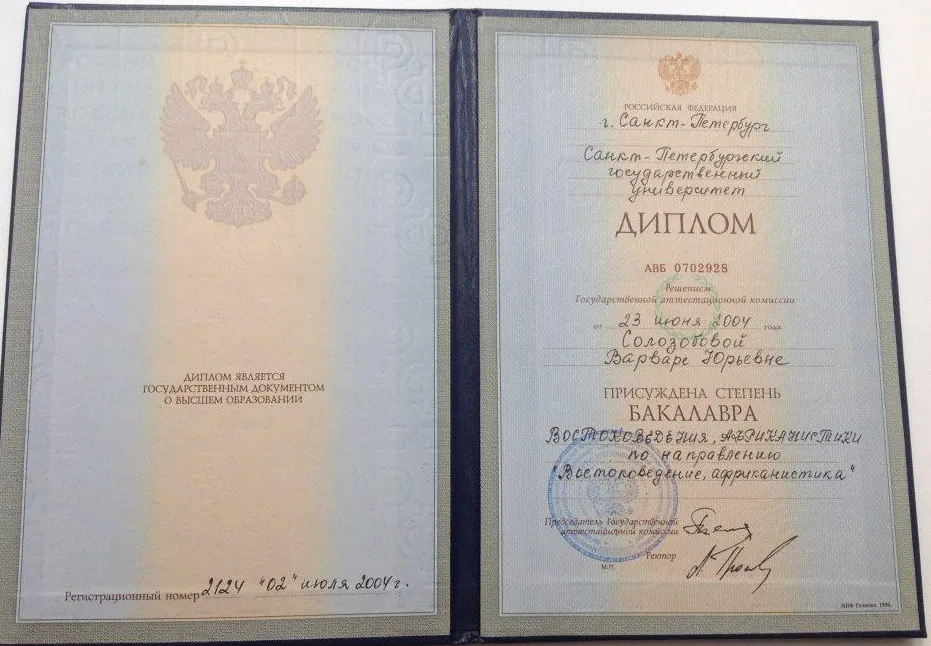 ДИПЛОМ ЯВЛЯЕТСЯ
ГОСУДАРСТВЕННЫМ ДОКУМЕНТОМ
О ВЫСШЕМ ОБРАЗОВАНИИ
Регистрационный номер 2124 "02" июля 2004 г.
РОССИЙСКАЯ ФЕДЕРАЦИЯ
г. Санкт-Петербург
Санкт-Петербургский
государственный
университет
ДИПЛОМ
АВБ 0702928
Решением
Государственной аттестационной комиссии
от 23 июня 2004 года
Солозобовой
Варваре Юрьевне
ПРИСУЖДЕНА СТЕПЕНЬ
БАКАЛАВРА
ВОСТОКОВЕДЕНИЯ, АФРИКАНИСТИКИ
по направлению
"Востоковедение, африканистика"
Председатель Государственной
аттестационной комиссии
Ректор
М.П.